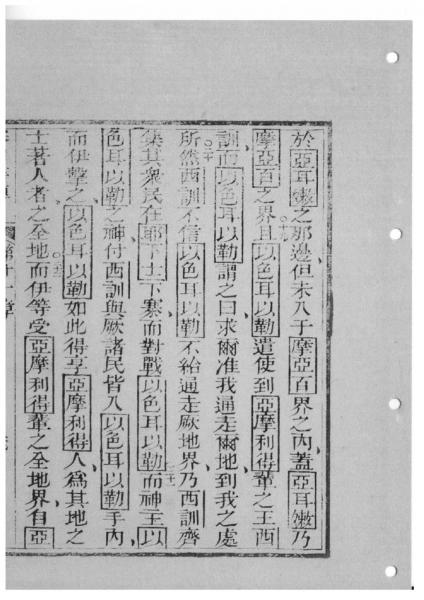 於亞耳嫩之那邊但未入于摩亞百界之內蓋亞耳嫩乃
摩亞百之界且○十九以色耳以勒遣使到亞摩利得輩之王西
訓而以色耳以勒謂之曰求爾准我通走爾地到我之處
所○二十然西訓不信以色耳以勒不給通走厥地界乃西訓齊
集其衆民在耶下士下寨而對戰以色耳以勒○二一而神王以
色耳以勒之神付西訓與厥諸民皆入以色耳以勒手內
而伊擊之以色耳以勒如此得享亞摩利得人爲其地之
士著人者○二二之全地而伊等受亞摩利得輩之全地界自亞
第十一章